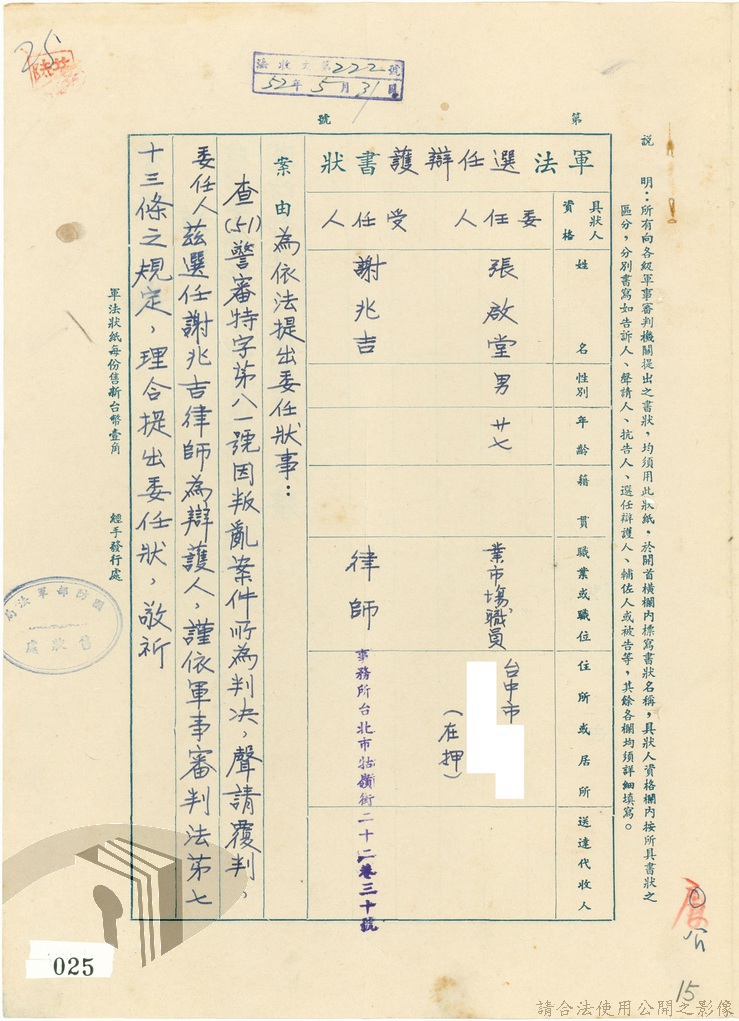 25
法收文第222號
52年5月31日
第　號
說　明：所有向各級軍事審判機關提出之書狀，均須用此狀紙，於開首橫欄內標寫書狀名稱，具狀人資格欄內按所具書狀之
區分，分別書寫如告訴人、聲請人、抗告人、選任辯護人、輔佐人或被告等，其餘各欄均須詳細填寫。
軍法選任辯護書狀
具狀人資格
姓名
性別
年齡
籍貫
職業或職位
住所或居所
送達代收人
委任人
張啟堂
男
廿七
業市場職員
台中市
（在押）
受任人
謝兆吉
律師
事務所台北市牯嶺街二十二巷三十號
案由
為依法提出委任狀事：
查(51)警審特字第八一號因叛亂案件所為判決，聲請覆判，
委任人茲選任謝兆吉律師為辯護人，謹依軍事審判法第七
十三條之規定，理合提出委任狀，敬祈
軍法狀紙每份售新台幣壹角
經手發行處
國防部軍法局
售狀處
025
15
請合法使用公開之影像